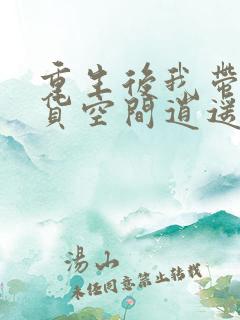 重生後我帶
貨空間逍遙
湯山
未經同意禁止轉載